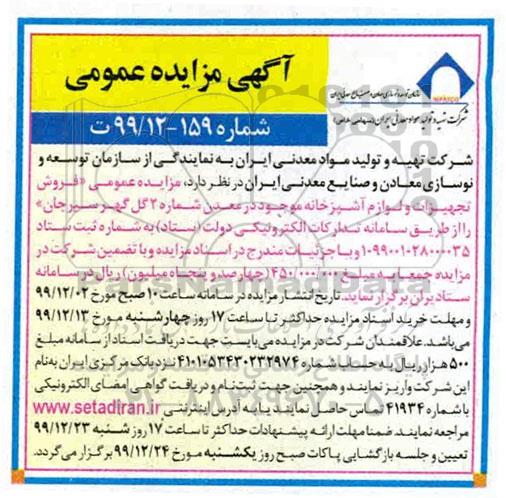 آگهی مزایده عمومی
شماره ۱۵۹-۹۹/۱۲ ت
IMPASCO
سازمان توسعه و نوسازی معادن و صنایع معدنی ایران
شرکت تهیه و تولید مواد معدنی ایران (سهامی خاص)
شرکت تهیه و تولید مواد معدنی ایران به نمایندگی از سازمان توسعه و
نوسازی معادن و صنایع معدنی ایران در نظر دارد، مزایده عمومی «فروش
تجهیزات و لوازم آشپزخانه موجود در معدن شماره ۲ گل گهر سیرجان»
را از طریق سامانه تدارکات الکترونیکی دولت (ستاد) به شماره ثبت ستاد
۱۰۹۹۰۰۱۰۲۸۰۰۰۰۳۵ و با جزئیات مندرج در اسناد مزایده و با تضمین شرکت در
مزایده جمعا به مبلغ ۴۵۰/۰۰۰/۰۰۰ (چهارصد و پنجاه میلیون) ریال در سامانه
ستاد ایران برگزار نماید. تاریخ انتشار مزایده در سامانه ساعت ۱۰ صبح مورخ ۹۹/۱۲/۰۲
و مهلت خرید اسناد مزایده حداکثر تا ساعت ۱۷ روز چهارشنبه مورخ ۹۹/۱۲/۱۳
می‌باشد. علاقمندان شرکت در مزایده می‌بایست جهت دریافت اسناد از سامانه مبلغ
۵۰۰ هزار ریال به حساب شماره ۴۱۰۱۰۵۳۴۳۰۲۳۲۹۷۴ نزد بانک مرکزی ایران به نام
این شرکت واریز نمایند و همچنین جهت ثبت نام و دریافت گواهی امضای الکترونیکی
با شماره ۴۱۹۳۴ تماس حاصل نمایند یا به آدرس اینترنتی www.setadiran.ir
مراجعه نمایند. ضمنا مهلت ارائه پیشنهادات حداکثر تا ساعت ۱۷ روز شنبه ۹۹/۱۲/۲۳
تعیین و جلسه بازگشایی پاکات صبح روز یکشنبه مورخ ۹۹/۱۲/۲۴ برگزار می‌گردد.
ParsNamadData